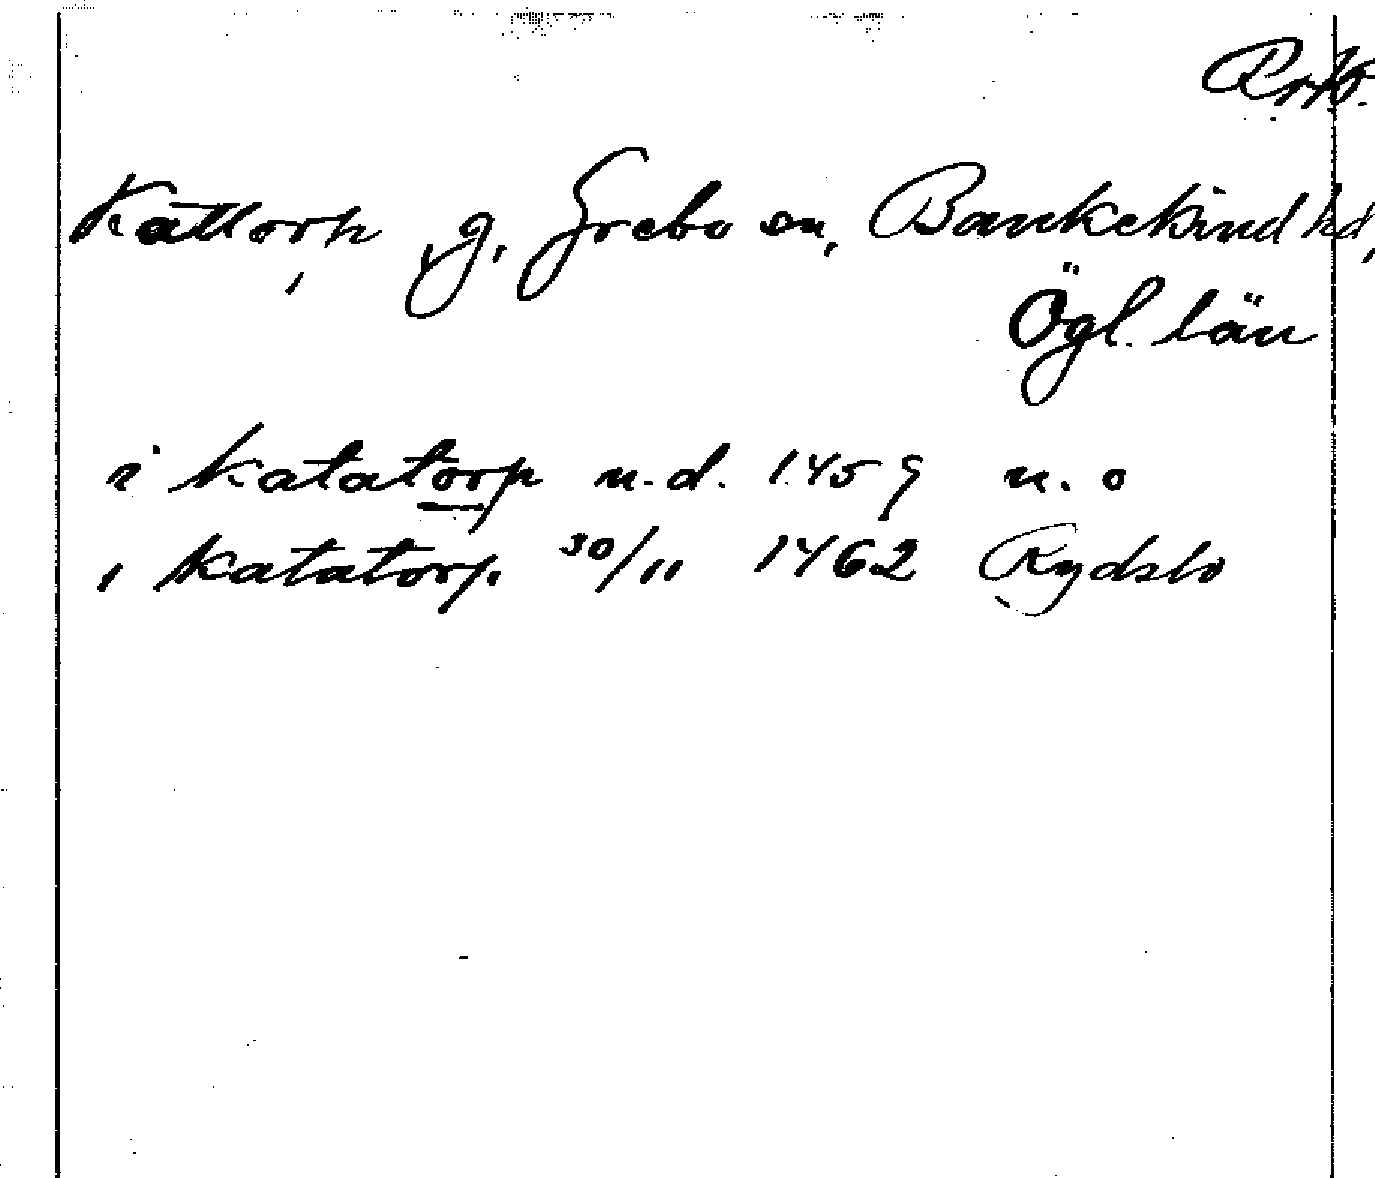 Kattorp, g, Grebo sn, Bankekind hd,
Ögl. län
i katatorp u.d. 1459 n. o
i katatorp. 30/11 1462 Rydsbo